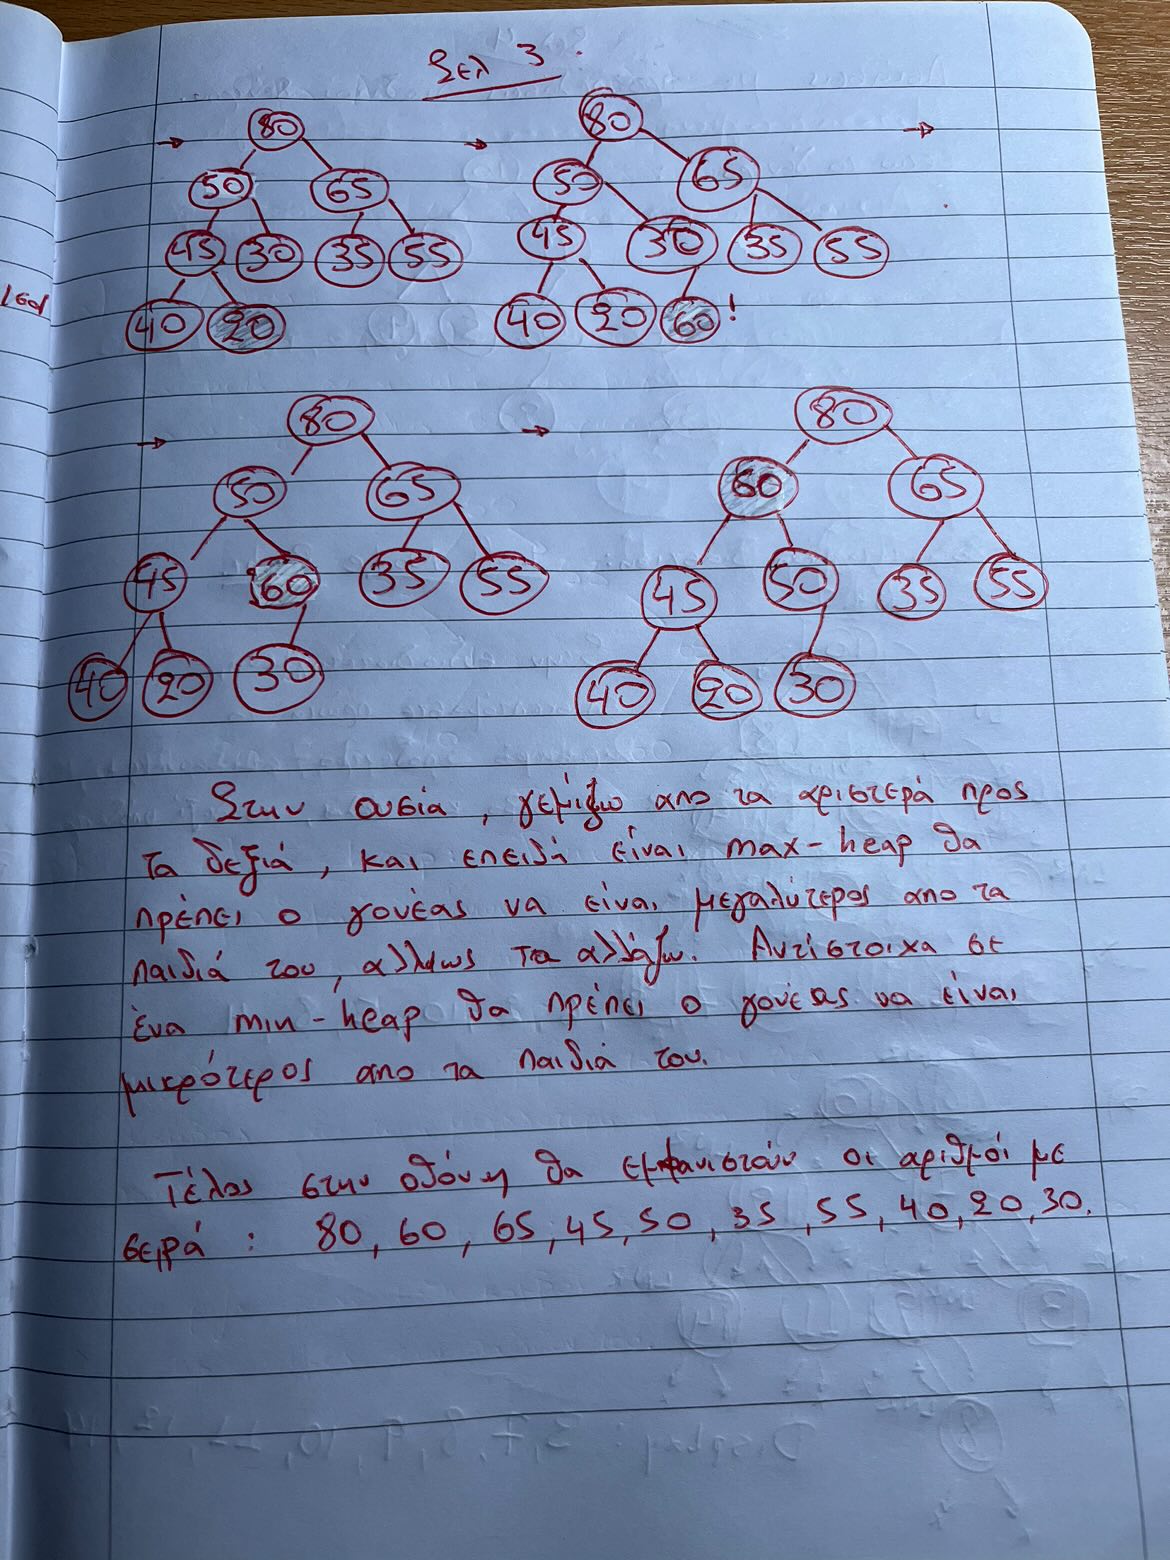 Σελ 3.
→ 80 → 80 →
50 65 50 65
45 30 35 55 45 30 35 55
40 20 40 20 60 !
→ 80 → 80
50 65 60 65
45 60 35 55 45 50 35 55
40 20 30 40 20 30
Στην ουσία, γεμίζω απο τα αριστερά προς
τα δεξιά, και επειδή είναι max-heap θα
πρέπει ο γονέας να είναι μεγαλύτερος απο τα
παιδιά του, αλλιως τα αλλάζω. Αντίστοιχα σε
ένα min-heap θα πρέπει ο γονέας να είναι
μικρότερος απο τα παιδιά του.
Τέλος στην οθόνη θα εμφανιστούν οι αριθμοί με
σειρά : 80, 60, 65, 45, 50, 35, 55, 40, 20, 30.